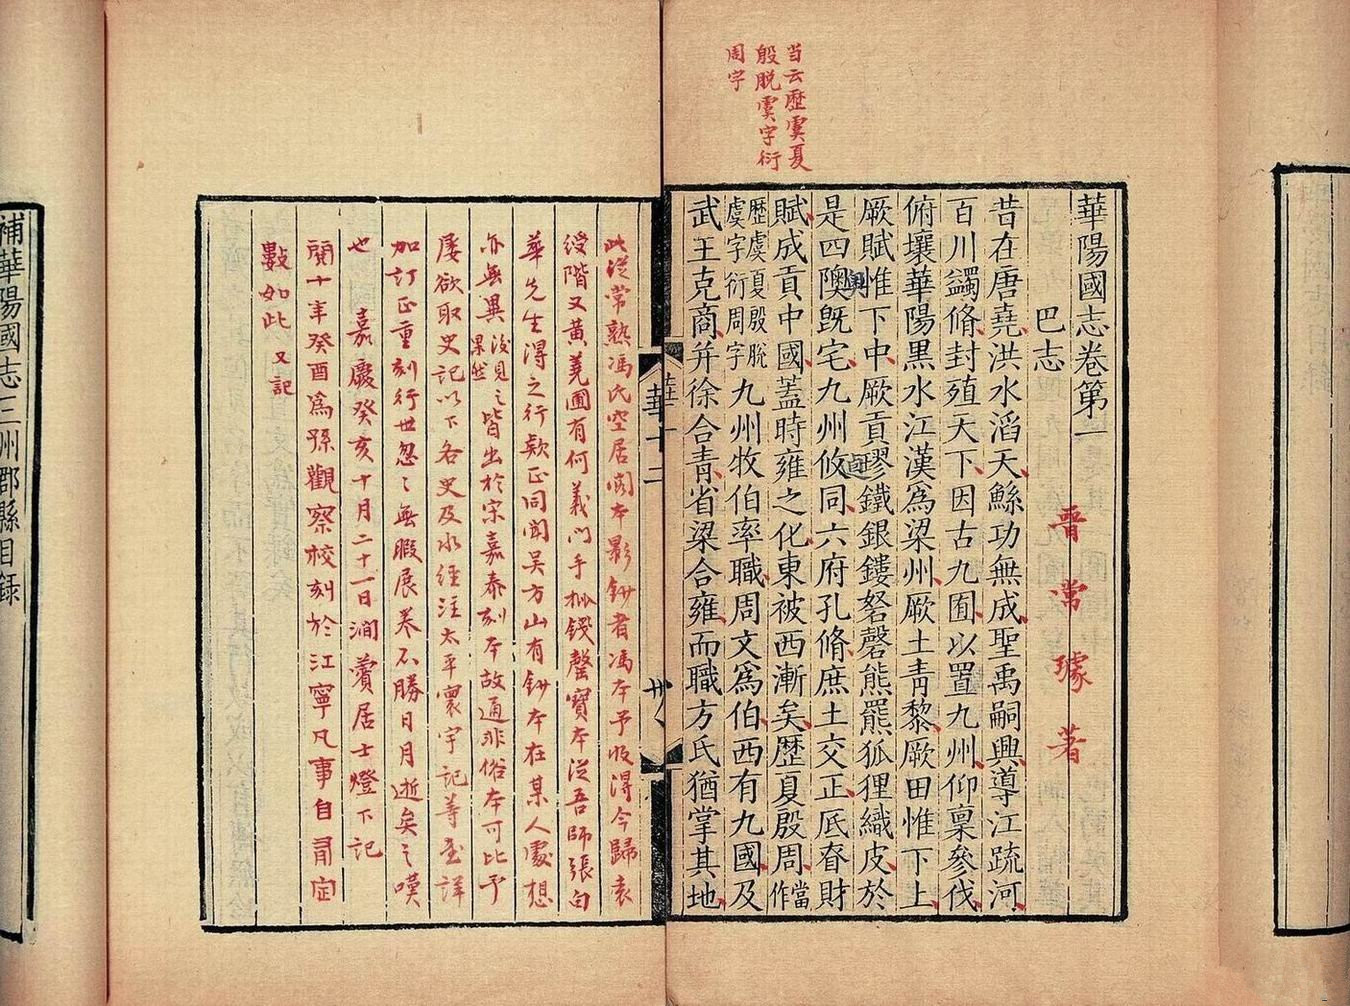 当云歷虞夏
殷脱虞字衍
周字
華陽國志卷第一
巴志 晉常璩著
昔在唐堯洪水滔天鯀功無成聖禹嗣興導江疏河
百川蠲脩封殖天下因古九囿以置九州仰稟參伐
俯壤華陽黑水江漢爲梁州厥土青黎厥田惟下上
厥賦惟下中厥貢璆鐵銀鏤砮磬熊羆狐狸織皮於
是四隩旣宅九州攸同六府孔脩庶土交正厎眘財
賦成貢中國蓋時雍之化東被西漸矣歷夏殷周當作
歷虞夏殷脫虞字衍周字九州牧伯率職周文爲伯西有九國及
武王克商并徐合青省梁合雍而職方氏猶掌其地
華一
華十二
卅八
此從常熟馮氏空居閣本影鈔者馮本予收得今歸袁
綬階又黃蕘圃有何義門手校錢罄室本從吾師張白
華先生得之行款正同聞吴方山有鈔本在某人處想
亦無異後見之果然皆出於宋嘉泰刻本故通非俗本可比予
屢欲取史記以下各史及水經注太平寰宇記等書詳
加訂正重刻行世忽〻無暇展卷不勝日月逝矣之嘆
也 嘉慶癸亥十月二十一日澗薲居士燈下記
閱十年癸酉爲孫觀察校刻於江寧凡事自有定
數如此又記
補華陽國志三州郡縣目録